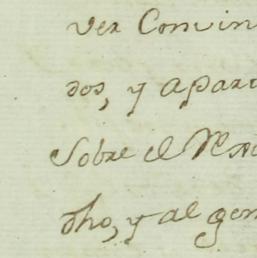 ver Convin
dos, y apar
Sobre el
dho, y al gen